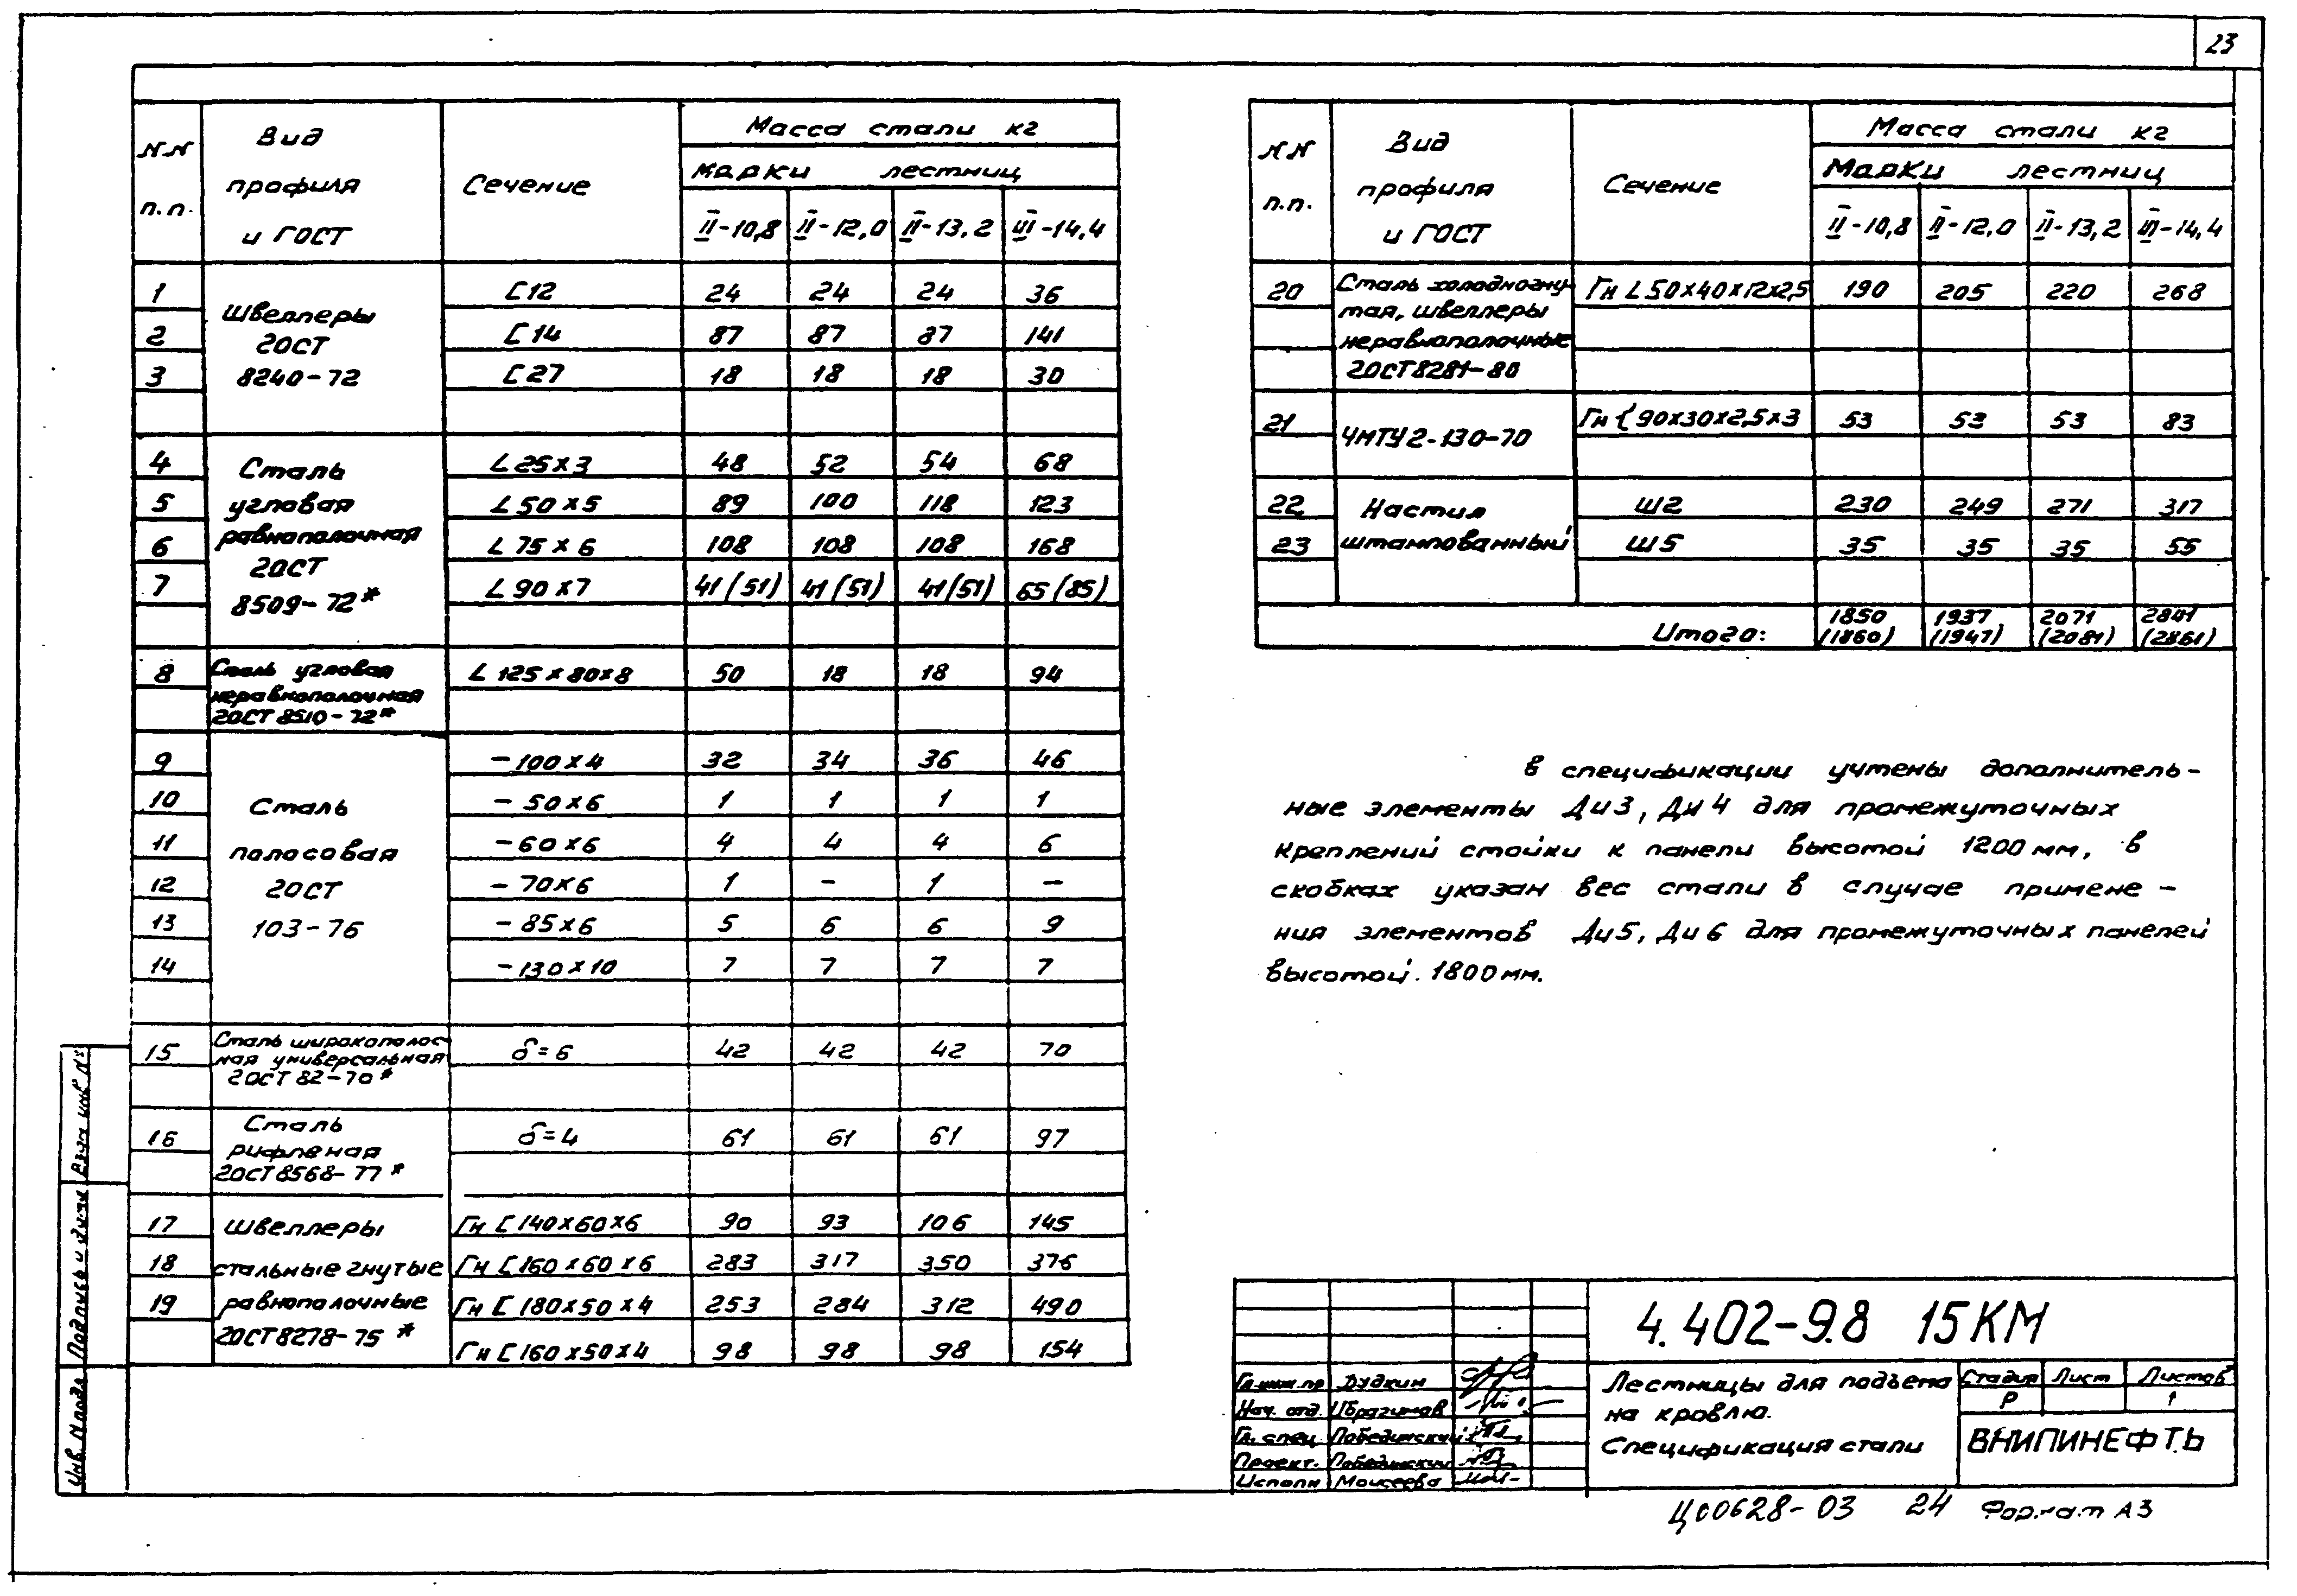 23
NN п.п. Вид профиля и ГОСТ Сечение Масса стали кг
марки лестниц
II-10,8 II-12,0 II-13,2 III-14,4
1 Швеллеры ГОСТ 8240-72 [12 24 24 24 36
2 [14 87 87 87 141
3 [27 18 18 18 30
4 Сталь угловая равнополочная ГОСТ 8509-72* L25x3 48 52 54 68
5 L50x5 89 100 118 123
6 L75x6 108 108 108 168
7 L90x7 41(51) 41(51) 41(51) 65(85)
8 Сталь угловая неравнополочная ГОСТ 8510-72* L125x80x8 50 18 18 94
9 Сталь полосовая ГОСТ 103-76 -100x4 32 34 36 46
10 -50x6 1 1 1 1
11 -60x6 4 4 4 6
12 -70x6 1 - 1 -
13 -85x6 5 6 6 9
14 -130x10 7 7 7 7
15 Сталь широкополосная универсальная ГОСТ 82-70* δ=6 42 42 42 70
16 Сталь рифленая ГОСТ 8568-77* δ=4 61 61 61 97
17 Швеллеры стальные гнутые равнополочные ГОСТ 8278-75* Гн [140x60x6 90 93 106 145
18 Гн [160x60x6 283 317 350 376
19 Гн [180x50x4 253 284 312 490
Гн [160x50x4 98 98 98 154
NN п.п. Вид профиля и ГОСТ Сечение Масса стали кг
Марки лестниц
II-10,8 II-12,0 II-13,2 III-14,4
20 Сталь холодногнутая, швеллеры неравнополочные ГОСТ 8281-80 Гн L50x40x12x2,5 190 205 220 268
21 ЧМТУ 2-130-70 Гн {90x30x2,5x3 53 53 53 83
22 Настил штампованный Ш2 230 249 271 317
23 Ш5 35 35 35 55
Итого: 1850 (1860) 1937 (1947) 2071 (2081) 2841 (2861)
В спецификации учтены дополнитель-
ные элементы Ди3, Ди4 для промежуточных
креплений стойки к панели высотой 1200мм, в
скобках указан вес стали в случае примене-
ния элементов Ди5, Ди6 для промежуточных панелей
высотой 1800мм.
4.402-9.8 15КМ
Гл.инж.пр Дудкин
Нач. отд. Ибрагимов
Гл. спец. Победимский
Проект. Победимский
Исполн Моисеева
Лестницы для подъема
на кровлю.
Спецификация стали
Стадия Лист Листов
Р 1
ВНИПИНЕФТЬ
Ц00628-03 24 Формат А3
Взам инв №
Подпись и дата
Инв N подл